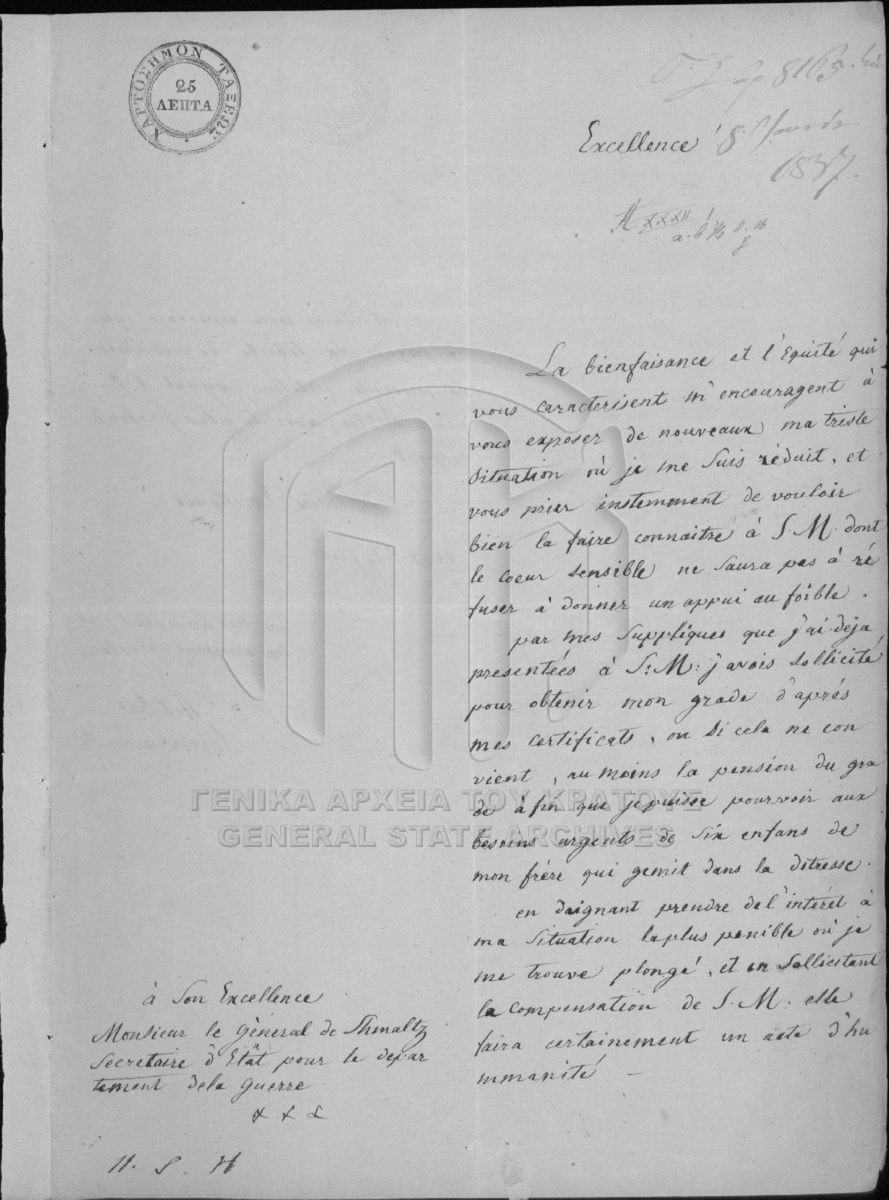 ΧΑΡΤΟΣΗΜΟΝ ΤΑΞΕΩΣ
25
ΛΕΠΤΑ
8165
Excellence
8
1837
XXXII
La bienfaisance et l'Equité qui
vous caracterisent m'encouragent à
vous exposer de nouveaux ma triste
Situation où je me suis réduit, et
vous prier instemment de vouloir
bien la faire connaitre à S. M. dont
le coeur sensible ne saura pas à ré
fuser à donner un appui au foible.
par mes suppliques que j'ai deja
presentées à S: M: j'avois sollicité
pour obtenir mon grade d'aprés
mes certificats, ou si cela ne con
vient, au moins la pension du gra
de à fin que je puisse pourvoir aux
besoins urgents de six enfans de
mon frére qui gemit dans la détresse.
en daignant prendre de l'intéret à
ma situation la plus penible où je
me trouve plongé, et en sollicitant
la compensation de S. M: elle
faira certainement un acte d'hu
mmanité —
à Son Excellence
Monsieur le Géneral de Shmaltz
Secretaire d'Etat pour le depar
tement de la guerre
ΓΕΝΙΚΑ ΑΡΧΕΙΑ ΤΟΥ ΚΡΑΤΟΥΣ
GENERAL STATE ARCHIVES